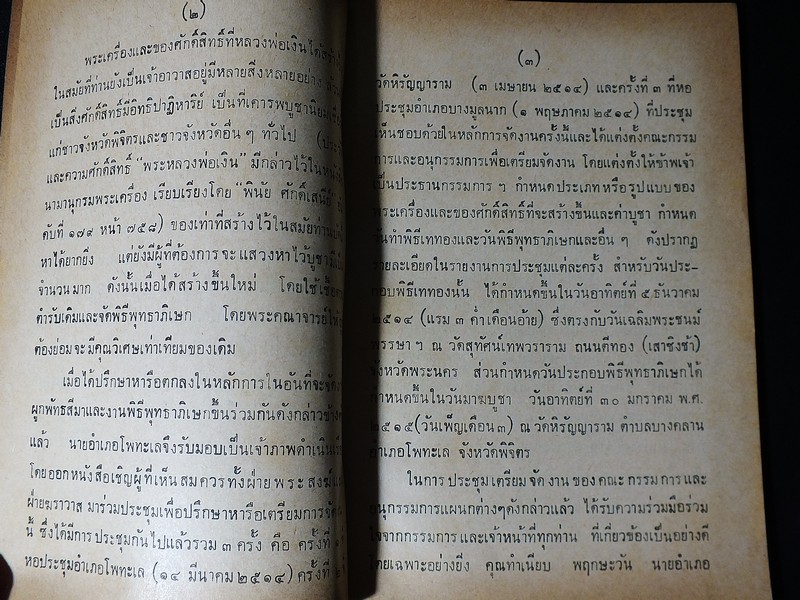 (๒)
พระเครื่องและของศักดิ์สิทธิ์ที่หลวงพ่อเงินได้
ในสมัยที่ท่านยังเป็นเจ้าอาวาสอยู่มีหลายสิ่งหลายอย่าง
เป็นสิ่งศักดิ์สิทธิ์มีอิทธิปาฏิหาริย์ เป็นที่เคารพบูชานิยม
แก่ชาวจังหวัดพิจิตรและชาวจังหวัดอื่น ๆ ทั่วไป
และความศักดิ์สิทธิ์ "พระหลวงพ่อเงิน" มีกล่าวไว้ใน
นามานุกรมพระเครื่อง เรียบเรียงโดย "พินัย ศักดิ์เสนีย์"
ดับที่ ๑๗๙ หน้า ๗๕๘) ของเท่าที่สร้างไว้ในสมัยท่าน
หาได้ยากยิ่ง แต่ยังมีผู้ที่ต้องการจะแสวงหาไว้บูชา
จำนวนมาก ดังนั้นเมื่อได้สร้างขึ้นใหม่ โดยใช้
ตำรับเดิมและจัดพิธีพุทธาภิเษก โดยพระคณาจารย์
ต้องย่อมจะมีคุณวิเศษเท่าเทียมของเดิม
เมื่อได้ปรึกษาหารือตกลงในหลักการในอันที่จะ
ผูกพัทธสีมาและงานพิธีพุทธาภิเษกขึ้นร่วมกันดังกล่าว
แล้ว นายอำเภอโพทะเลจึงรับมอบเป็นเจ้าภาพดำเนิน
โดยออกหนังสือเชิญผู้ที่เห็นสมควรทั้งฝ่ายพระสงฆ์
ฝ่ายฆราวาส มาร่วมประชุมเพื่อปรึกษาหารือเตรียมการ
นี้ ซึ่งได้มีการประชุมกันไปแล้วรวม ๓ ครั้ง คือ ครั้งที่
หอประชุมอำเภอโพทะเล (๑๔ มีนาคม ๒๕๑๔) ครั้งที่ ๒
(๓)
วัดหิรัญญาราม (๓ เมษายน ๒๕๑๔) และครั้งที่ ๓ ที่หอ
ประชุมอำเภอบางมูลนาก (๑ พฤษภาคม ๒๕๑๔) ที่ประชุม
เห็นชอบด้วยในหลักการจัดงานครั้งนี้และได้แต่งตั้งคณะกรรม
การและอนุกรรมการเพื่อเตรียมจัดงาน โดยแต่งตั้งให้ข้าพเจ้า
เป็นประธานกรรมการ ฯ กำหนดประเภทหรือรูปแบบของ
พระเครื่องและของศักดิ์สิทธิ์ที่จะสร้างขึ้นและค่าบูชา กำหนด
วันทำพิธีเททองและวันพิธีพุทธาภิเษกและอื่น ๆ ดังปรากฏ
รายละเอียดในรายงานการประชุมแต่ละครั้ง สำหรับวันประ-
กอบพิธีเททองนั้น ได้กำหนดขึ้นในวันอาทิตย์ที่ ๕ ธันวาคม
๒๕๑๔ (แรม ๓ ค่ำเดือนอ้าย) ซึ่งตรงกับวันเฉลิมพระชนม์
พรรษา ฯ ณ วัดสุทัศน์เทพวราราม ถนนตีทอง (เสาชิงช้า)
จังหวัดพระนคร ส่วนกำหนดวันประกอบพิธีพุทธาภิเษกได้
กำหนดขึ้นในวันมาฆบูชา วันอาทิตย์ที่ ๓๐ มกราคม พ.ศ.
๒๕๑๕ (วันเพ็ญเดือน ๓) ณ วัดหิรัญญาราม ตำบลบางคลาน
อำเภอโพทะเล จังหวัดพิจิตร
ในการประชุมเตรียมจัดงานของคณะกรรมการและ
อนุกรรมการแผนกต่างๆดังกล่าวแล้ว ได้รับความร่วมมือร่วม
ใจจากกรรมการและเจ้าหน้าที่ทุกท่าน ที่เกี่ยวข้องเป็นอย่างดี
โดยเฉพาะอย่างยิ่ง คุณทำเนียบ พฤกษะวัน นายอำเภอ